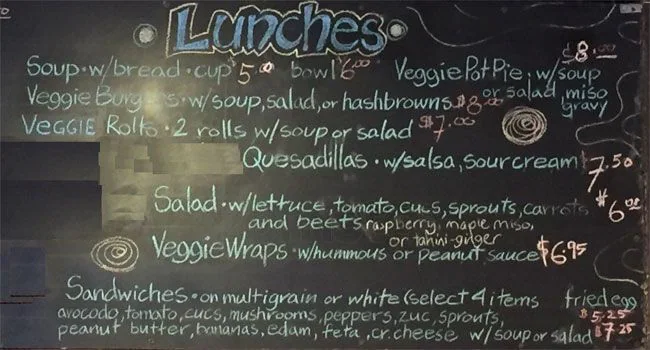 Lunches
Soup • w/bread • cup $5.00 bowl $6.00
Veggie Pot Pie w/soup or salad, miso gravy $8.00
Veggie Burgers • w/soup, salad, or hashbrowns $8.00
VEGGIE Rolls • 2 rolls w/soup or salad $7.00
Quesadillas • w/salsa, sour cream $7.50
Salad • w/lettuce, tomato, cucs, sprouts, carrots $6.00
and beets raspberry, maple miso,
or tahini-ginger
Veggie Wraps • w/hummous or peanut sauce $6.95
Sandwiches • on multigrain or white (select 4 items fried egg
avocodo, tomato, cucs, mushrooms, peppers, zuc, sprouts, $5.25
peanut butter, bananas, edam, feta, cr. cheese w/soup or salad $7.25